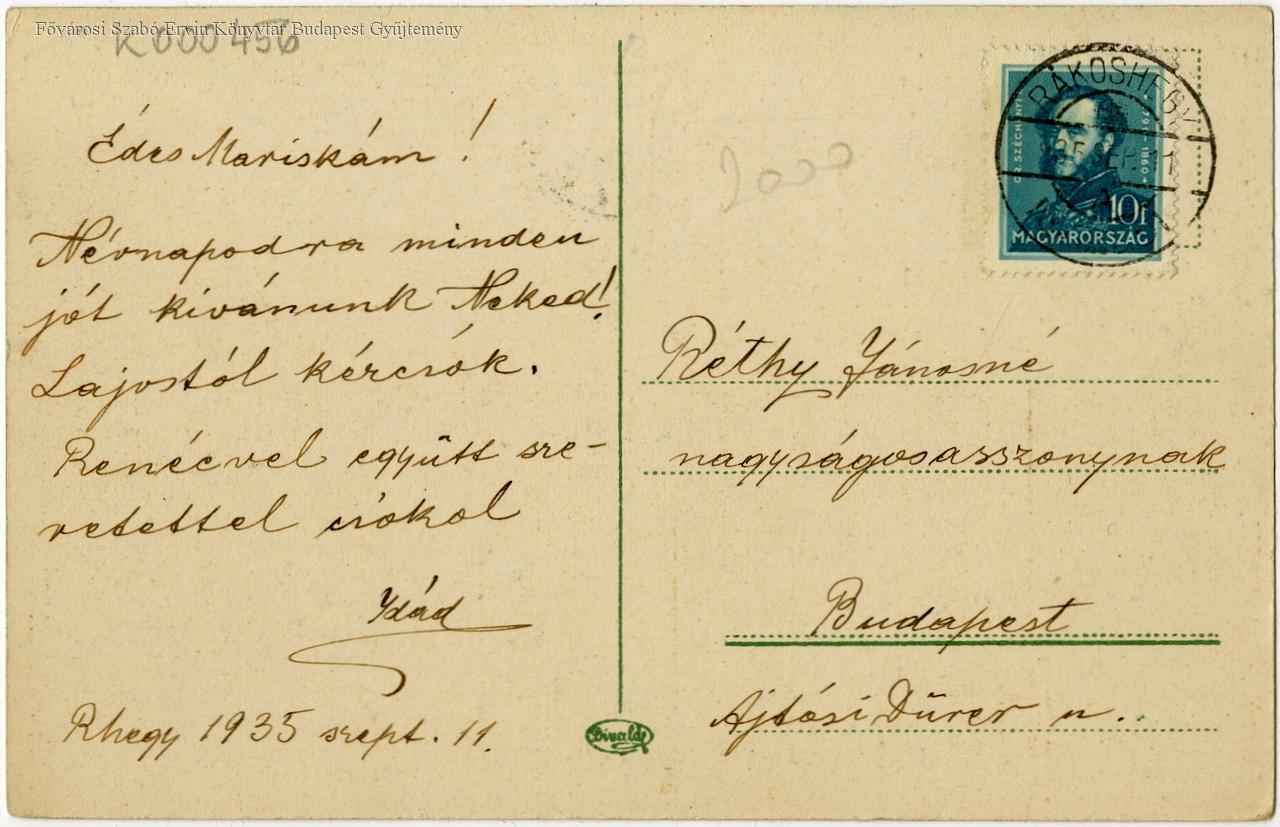 Fővárosi Szabó Ervin Könyvtár Budapest Gyűjtemény
K000456
Édes Mariskám!
Névnapodra minden
jót kivánunk Neked!
Lajostól kézcsók.
Renéevel együtt sze-
retettel csókol
Idád
Rhegy 1935 szept. 11.
Divald
2000
RÁKOSHEGY
GR. SZÉCHENYI
1860
10f
MAGYARORSZÁG
Réthy Jánosné
nagyságosasszonynak
Budapest
Ajtósi Dürer u.